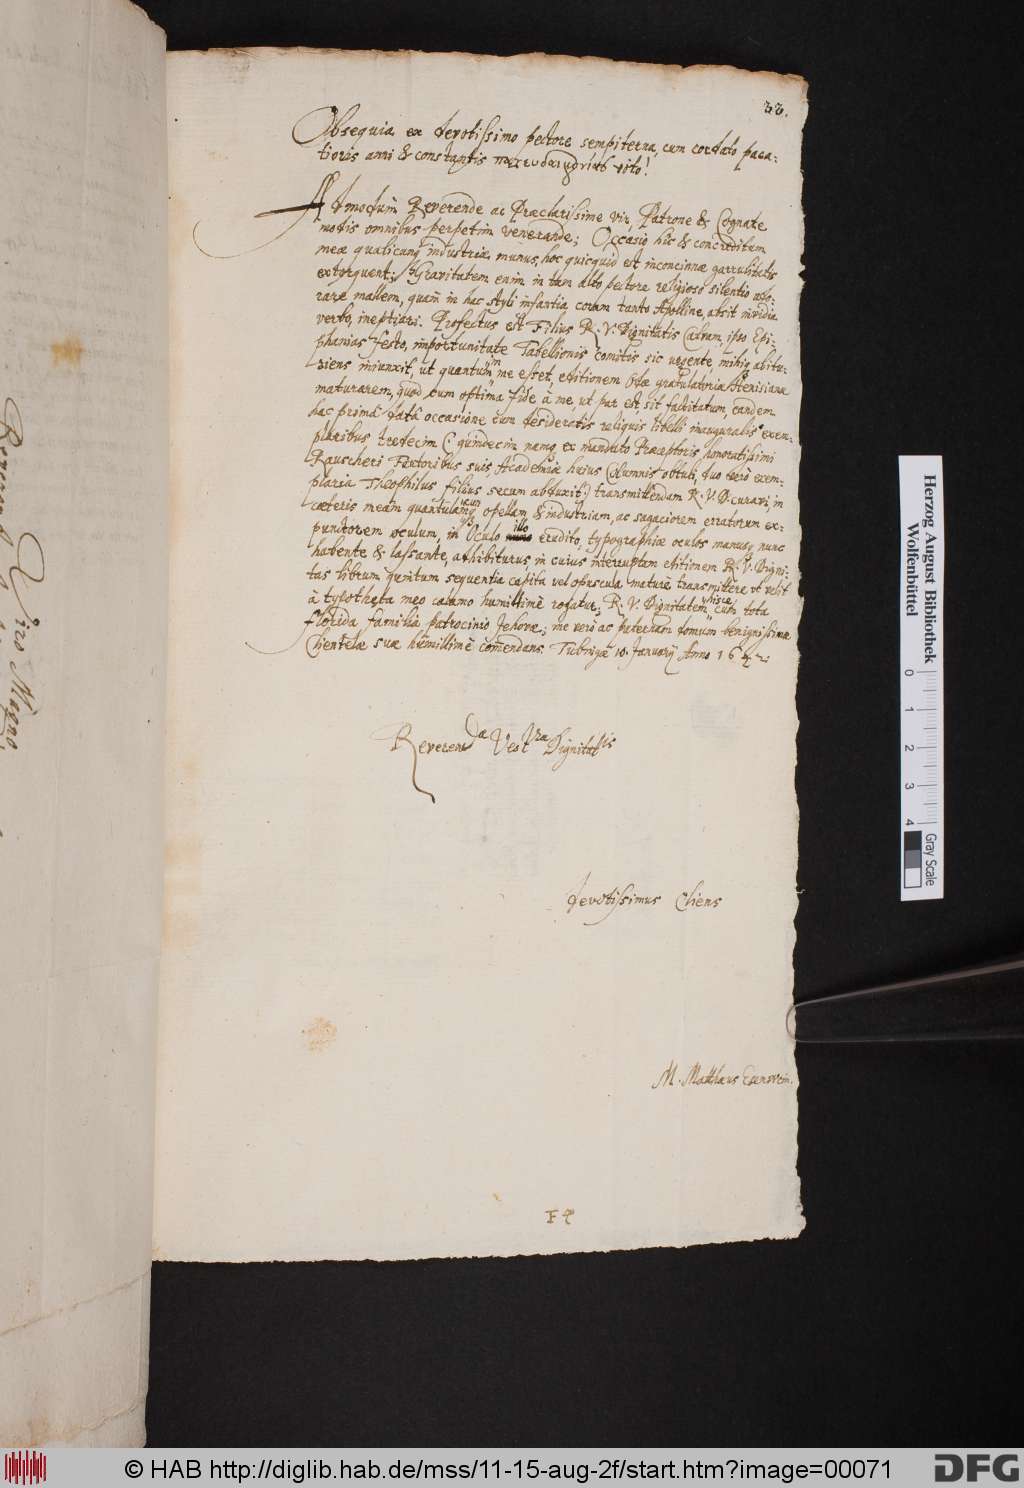 33.
Obsequia ex devotissimo pectore sempiterna, cum cordato paca-
tioris anni & constantis voto!
Admodum Reverende ac Præclarissime vir, Patrone & Cognate
modis omnibus perpetim venerande; Occasio hîc & concreditum
meæ qualicunq industriæ munus, hoc quicquid est inconcinnæ garrulitatis
extorquent; Gravitatem enim in tam alto pectore religioso silentio ado-
rare mallem, quam in hac styli infantia coram tanto Apolline, absit invidia
verbo, ineptiari. Profectus est Filius R. V. Dignitatis Calvam, ipso Epi-
phanias festo, importunitate Tabellionis comitis sic urgente, mihiq abitu-
riens iniunxit, ut quantum in me esset, editionem Odæ gratulatoriæ
maturarem, quod cum optima fide à me, ut par est, sit factitatum, eandem
hac primâ datâ occasione cum desideratis reliquis libelli inauguralis exem-
plaribus tredecim (: quindecim namq ex mandato Præceptoris honoratissimi
Rauscheri Fautoribus suis, Academiæ huius Columnis obtuli, duo verò exem-
plaria Theophilus filius secum abduxit:) transmittendam R. V. D. curavi, in
cæteris meam quantulamcunq ofellam & industriam, ac sagaciorem erratorum ex-
punctorem oculum, in Oculo illo erudito, typographiæ oculos manusq nunc
habente & lassante, adhibiturus, in cuius interruptam editionem R. V. Digni-
tas librum, quintum sequentia capita vel opuscula maturè transmittere ut velit
à typotheta meo calamo humillimè rogatur; R. V. Dignitatem cum tota
florida familia patrocinio Jehovæ; me verò ac paternam domum benignissimæ
Clientelæ suæ humillimè comendans. Tubingæ 10. Januarij Anno 1642.
Reverendæ Vestræ Dignitatis
devotissimus Cliens
M. Matthæus Esenwein.
Viro Magno
Herzog August Bibliothek
Wolfenbüttel
0 1 2 3 4
Gray Scale
© HAB http://diglib.hab.de/mss/11-15-aug-2f/start.htm?image=00071
DFG